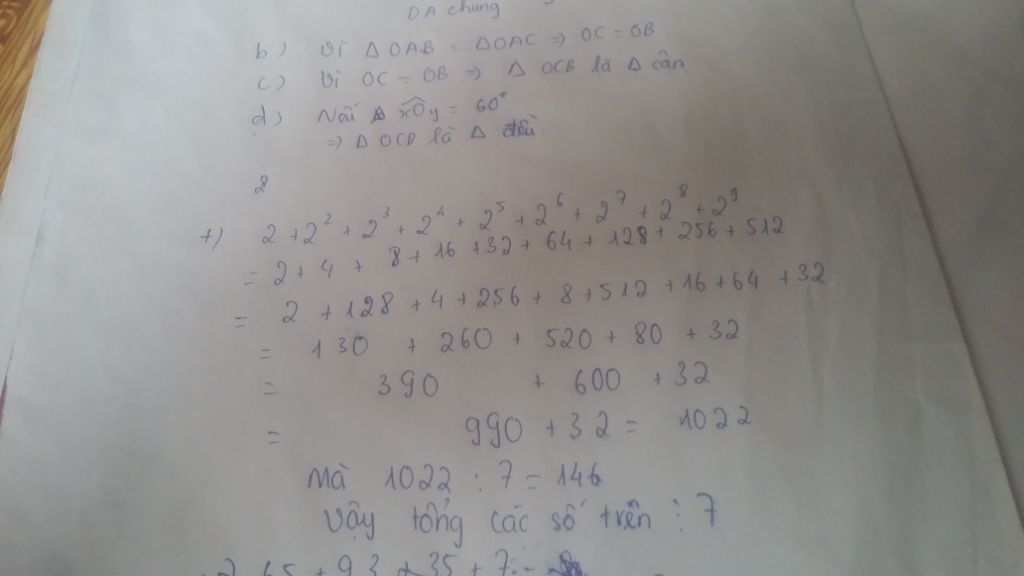 OA chung
b) Vì Δ OAB = ΔOAC => OC = OB
c) Vì OC = OB => Δ OCB là Δ cân
d) Nếu xOy = 60°
=> Δ OCB là Δ đều
2
+) 2 + 2² + 2³ + 2⁴ + 2⁵ + 2⁶ + 2⁷ + 2⁸ + 2⁹
= 2 + 4 + 8 + 16 + 32 + 64 + 128 + 256 + 512
= 2 + 128 + 4 + 256 + 8 + 512 + 16 + 64 + 32
= 130 + 260 + 520 + 80 + 32
= 390 + 600 + 32
= 990 + 32 = 1022
Mà 1022 : 7 = 146
Vậy tổng các số trên ⋮ 7